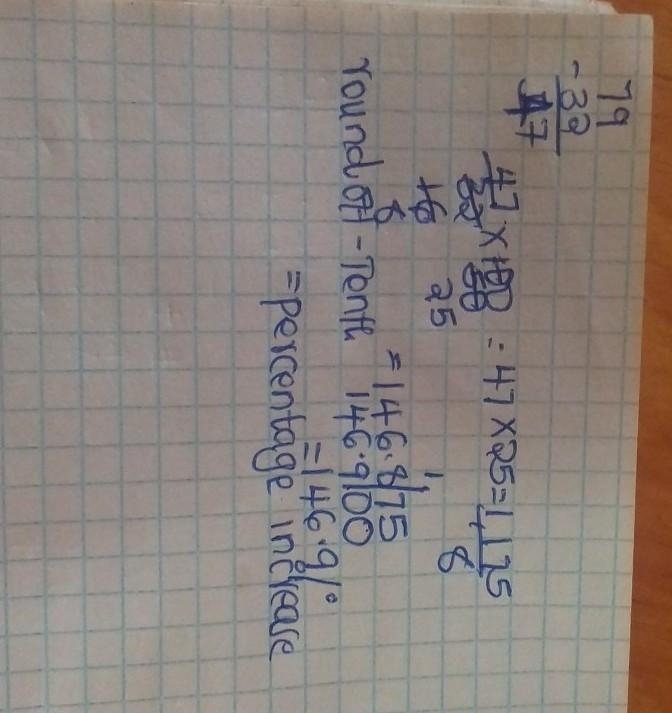 79
-32
47
47/32 × 100 = 47 × 25 = 1,175/8
16 50
8 25
= 146.8/75
round off - Tenth 146.9/00
= 146.9%
= percentage increase